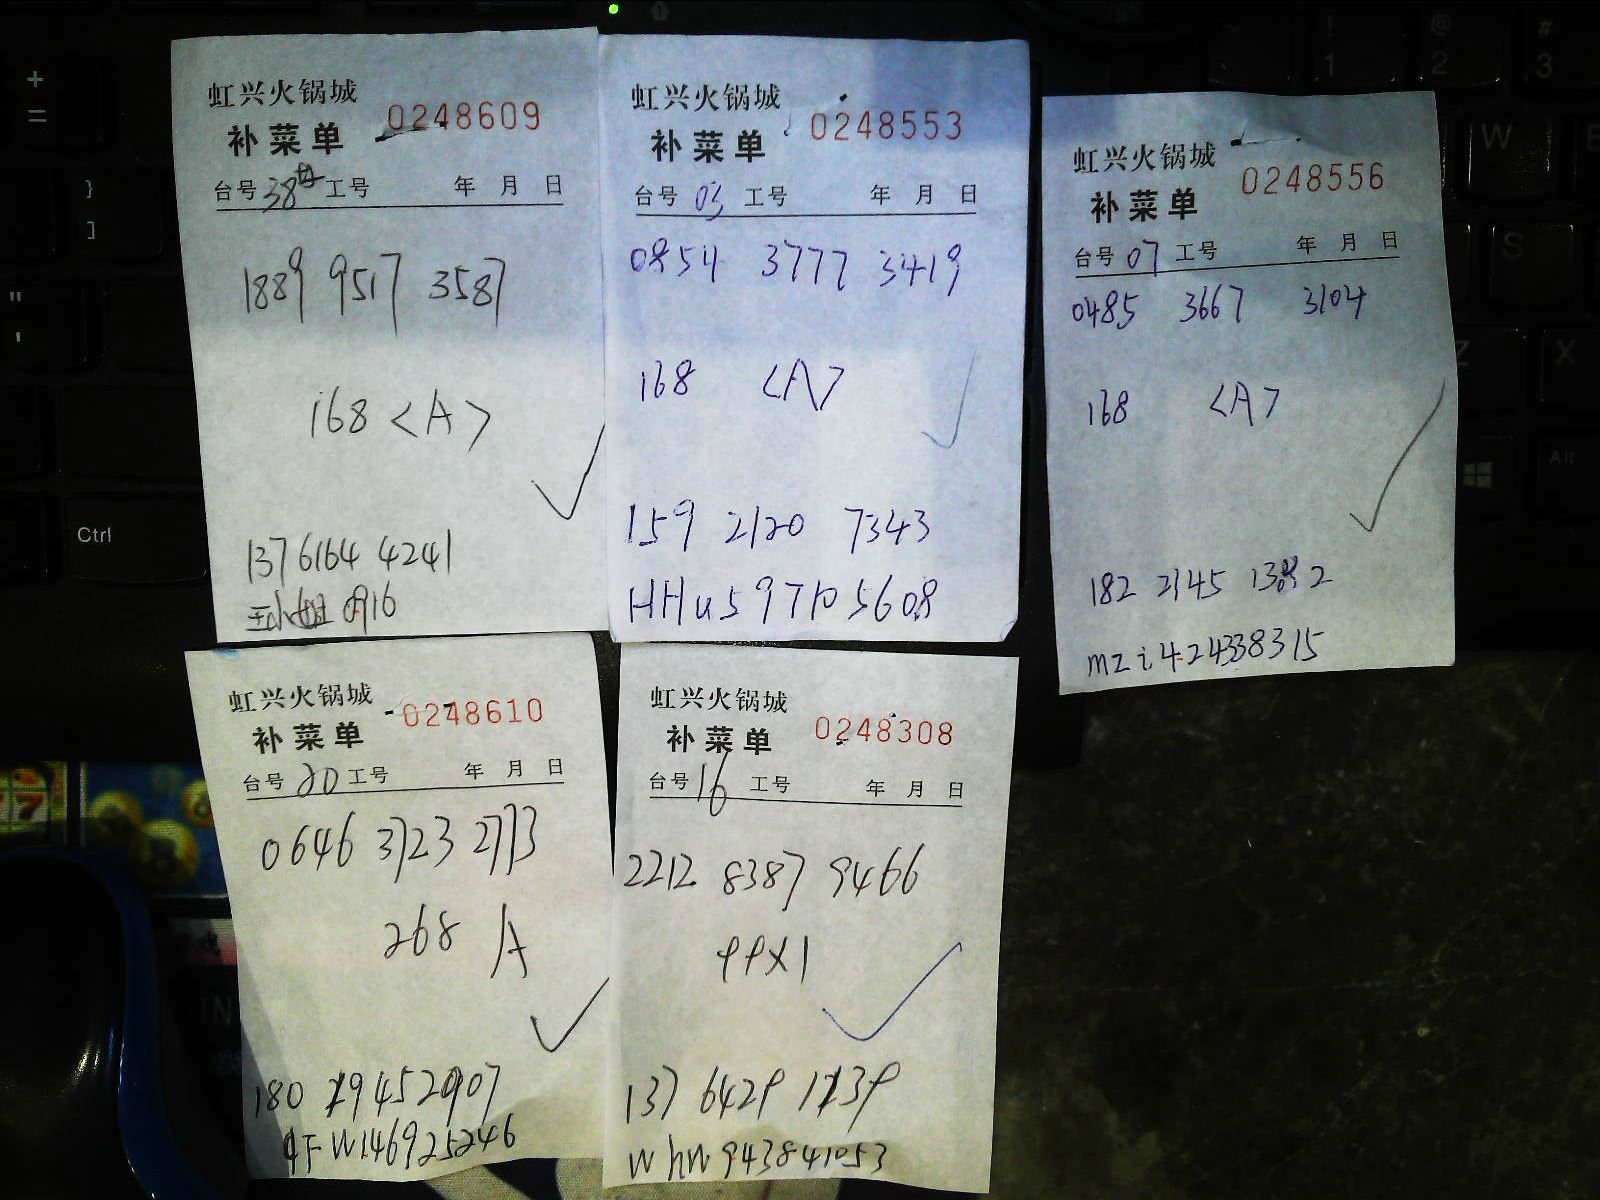 虹兴火锅城
0248609
补菜单
台号 38 工号 年 月 日
1889 9517 3587
168 <A>
137 6164 4241
王小姐 0916
虹兴火锅城
0248553
补菜单
台号 03 工号 年 月 日
0854 3777 3419
168 <A>
159 2120 7343
HHu597105608
虹兴火锅城
0248556
补菜单
台号 07 工号 年 月 日
0485 3667 3104
168 <A>
182 2145
mzi424338315
虹兴火锅城
0248610
补菜单
台号 20 工号 年 月 日
0646 3723 2773
268 A
180
虹兴火锅城
0248308
补菜单
台号 16 工号 年 月 日
2212 8387 9466
PPX1
137 6429
WhW943841053
Ctrl
Alt